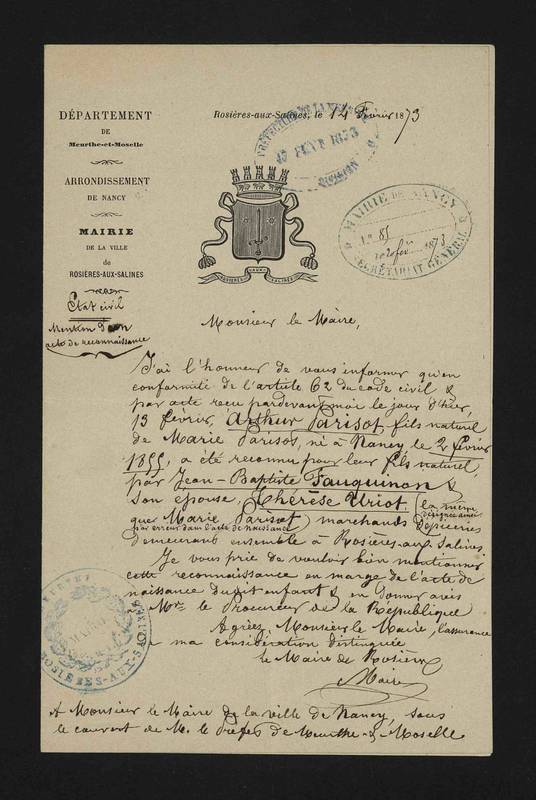 DÉPARTEMENT
DE
Meurthe-et-Moselle
ARRONDISSEMENT
DE NANCY
MAIRIE
DE LA VILLE
de
ROSIÈRES-AUX-SALINES
Etat civil
Mention d'un
acte de reconnaissance
Rosières-aux-Salines, le 14 Février 1873
FEVR 1873
DIVISION
MAIRIE DE NANCY
N° 85
fév. 1873
SECRÉTARIAT GÉNÉRAL
ROSIÈRES AUX SALINES
Monsieur le Maire,
J'ai l'honneur de vous informer qu'en
conformité de l'article 62 du code civil &
par acte reçu pardevant moi le jour d'hier,
13 février, Arthur Parisot fils naturel
de Marie Parisot, né à Nancy le 2 février
1855, a été reconnu pour leur fils naturel,
par Jean-Baptiste Fauquinon &
son épouse, Thérèse Uriot (la même
que Marie Parisot) marchands d'épiceries
désignée ainsi
par erreur dans l'acte de naissance
demeurant ensemble à Rosières-aux-Salines
Je vous prie de vouloir bien mentionner
cette reconnaissance en marge de l'acte de
naissance dudit enfant & en donner avis
à Mr. le Procureur de la République
Agréez, Monsieur le Maire, l'assurance
de ma considération distinguée
Le Maire de Rosières
MAIRIE
ROSIÈRES-AUX-SALINES
A Monsieur le Maire de la ville de Nancy, sous
le couvert de M. le Préfet de Meurthe-&-Moselle